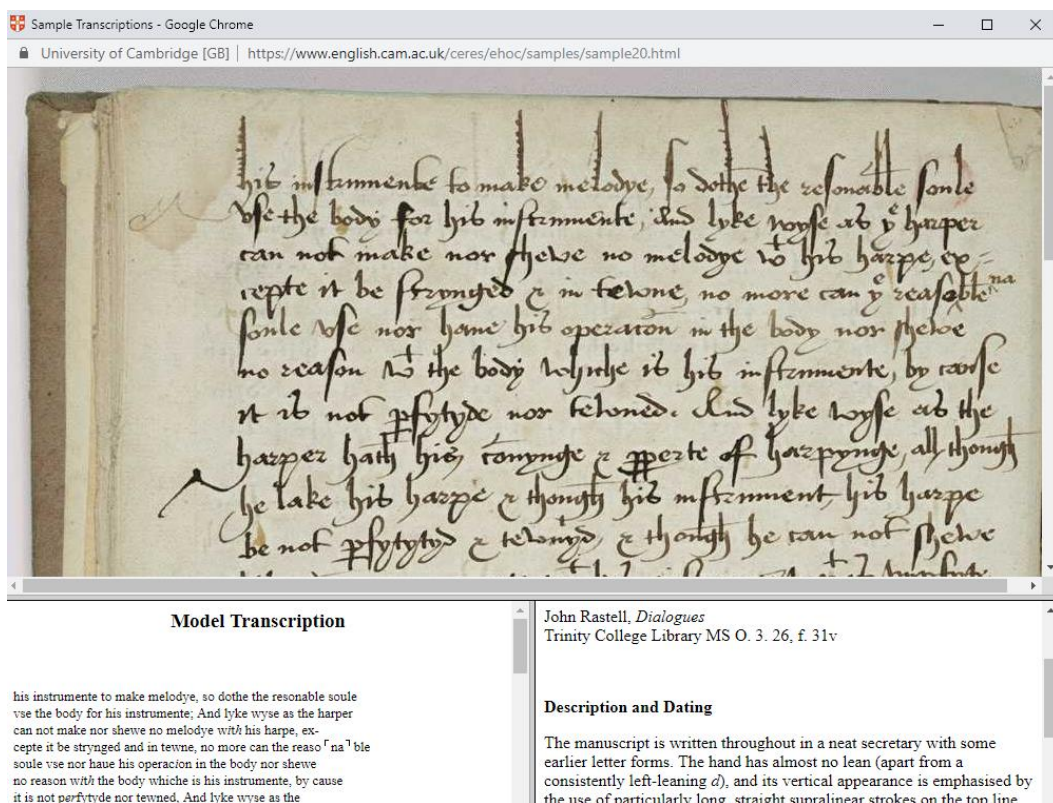 Sample Transcriptions - Google Chrome
University of Cambridge [GB] | https://www.english.cam.ac.uk/ceres/ehoc/samples/sample20.html
his instrumente to make melodye, so dothe the resonable soule
vse the body for his instrumente, And lyke wyse as yͤ harper
can not make nor shewe no melodye wᵗ his harpe, ex-
cepte it be strynged & in tewne, no more can yͤ reasoble na
soule vse nor haue his operacōn in the body nor shewe
no reason wᵗ the body whiche is his instrumente, by cause
it is not ꝑfytyde nor tewned. And lyke wyse as the
harper hath his connynge & experte of harpynge, all though
he lake his harpe & though his instrument his harpe
be not ꝑfytyd & tewnyd, & though he can not shewe
Model Transcription
his instrumente to make melodye, so dothe the resonable soule
vse the body for his instrumente; And lyke wyse as the harper
can not make nor shewe no melodye with his harpe, ex-
cepte it be strynged and in tewne, no more can the reaso⌜na⌝ble
soule vse nor haue his operacion in the body nor shewe
no reason with the body whiche is his instrumente, by cause
it is not perfytyde nor tewned, And lyke wyse as the
John Rastell, Dialogues
Trinity College Library MS O. 3. 26, f. 31v
Description and Dating
The manuscript is written throughout in a neat secretary with some
earlier letter forms. The hand has almost no lean (apart from a
consistently left-leaning d), and its vertical appearance is emphasised by
the use of particularly long, straight supralinear strokes on the top line